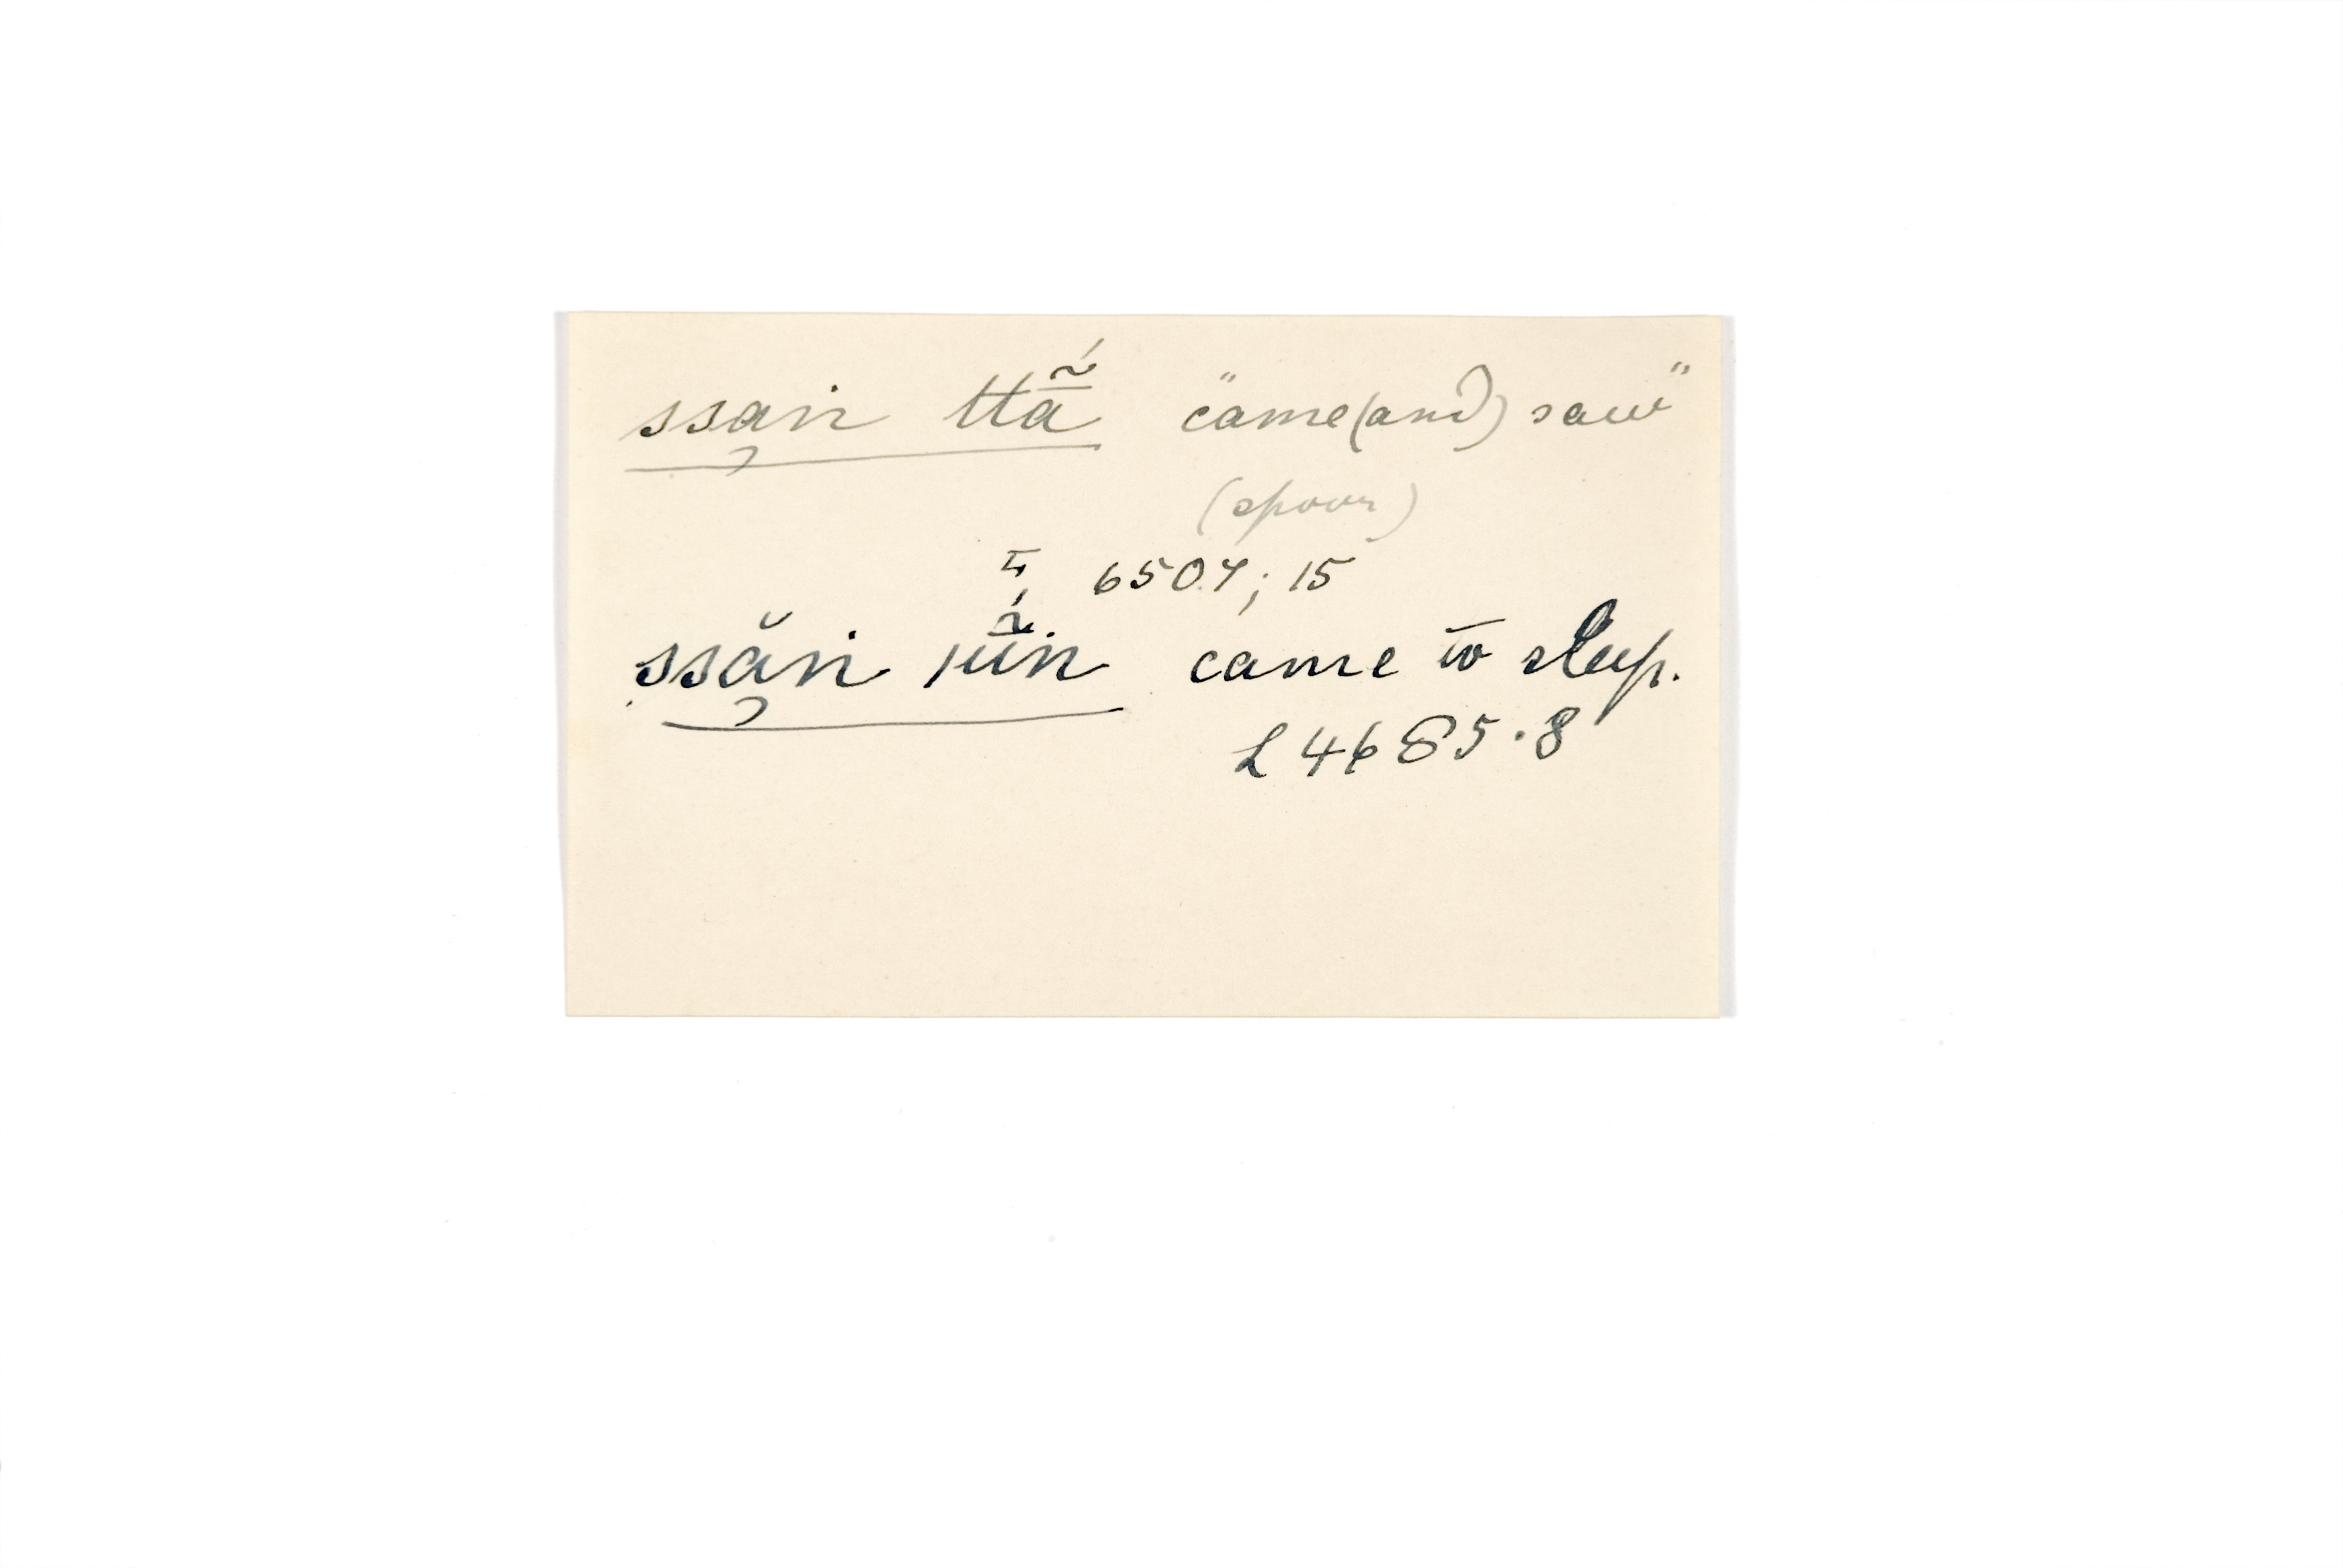 ssa̱in ttā̃́ "came (and) saw"
(spoor)
6507; 15
ssā̆in |ū̃́n came to sleep.
L 4685.8